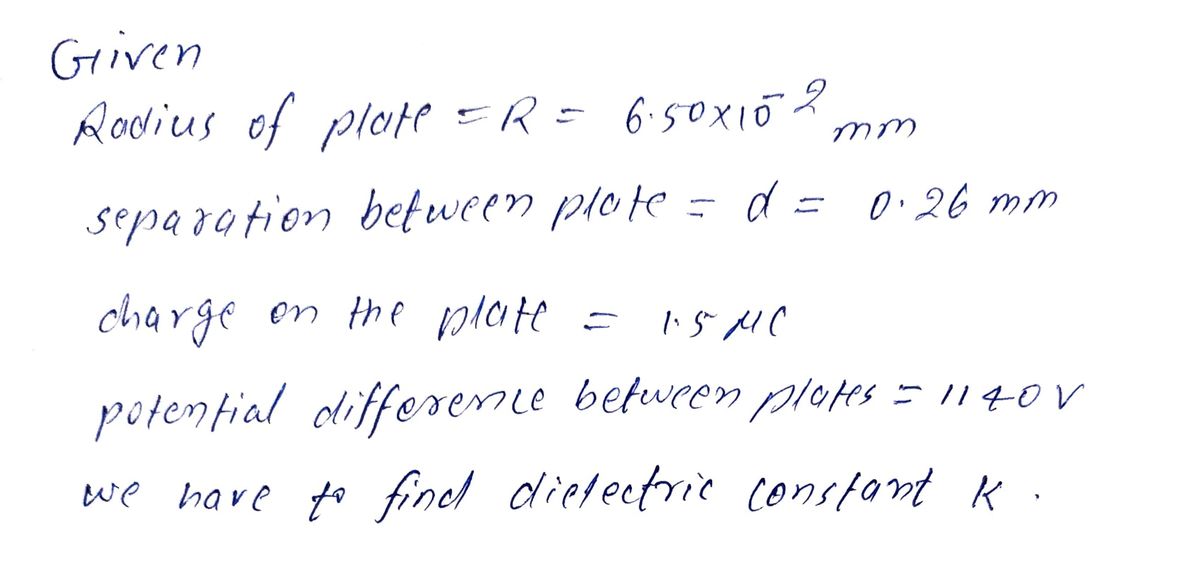 Given
Radius of plate = R = 6.50×10⁻² mm
separation between plate = d = 0.26 mm
charge on the plate = 1.5 μC
potential difference between plates = 1140 V
we have to find dielectric constant K.